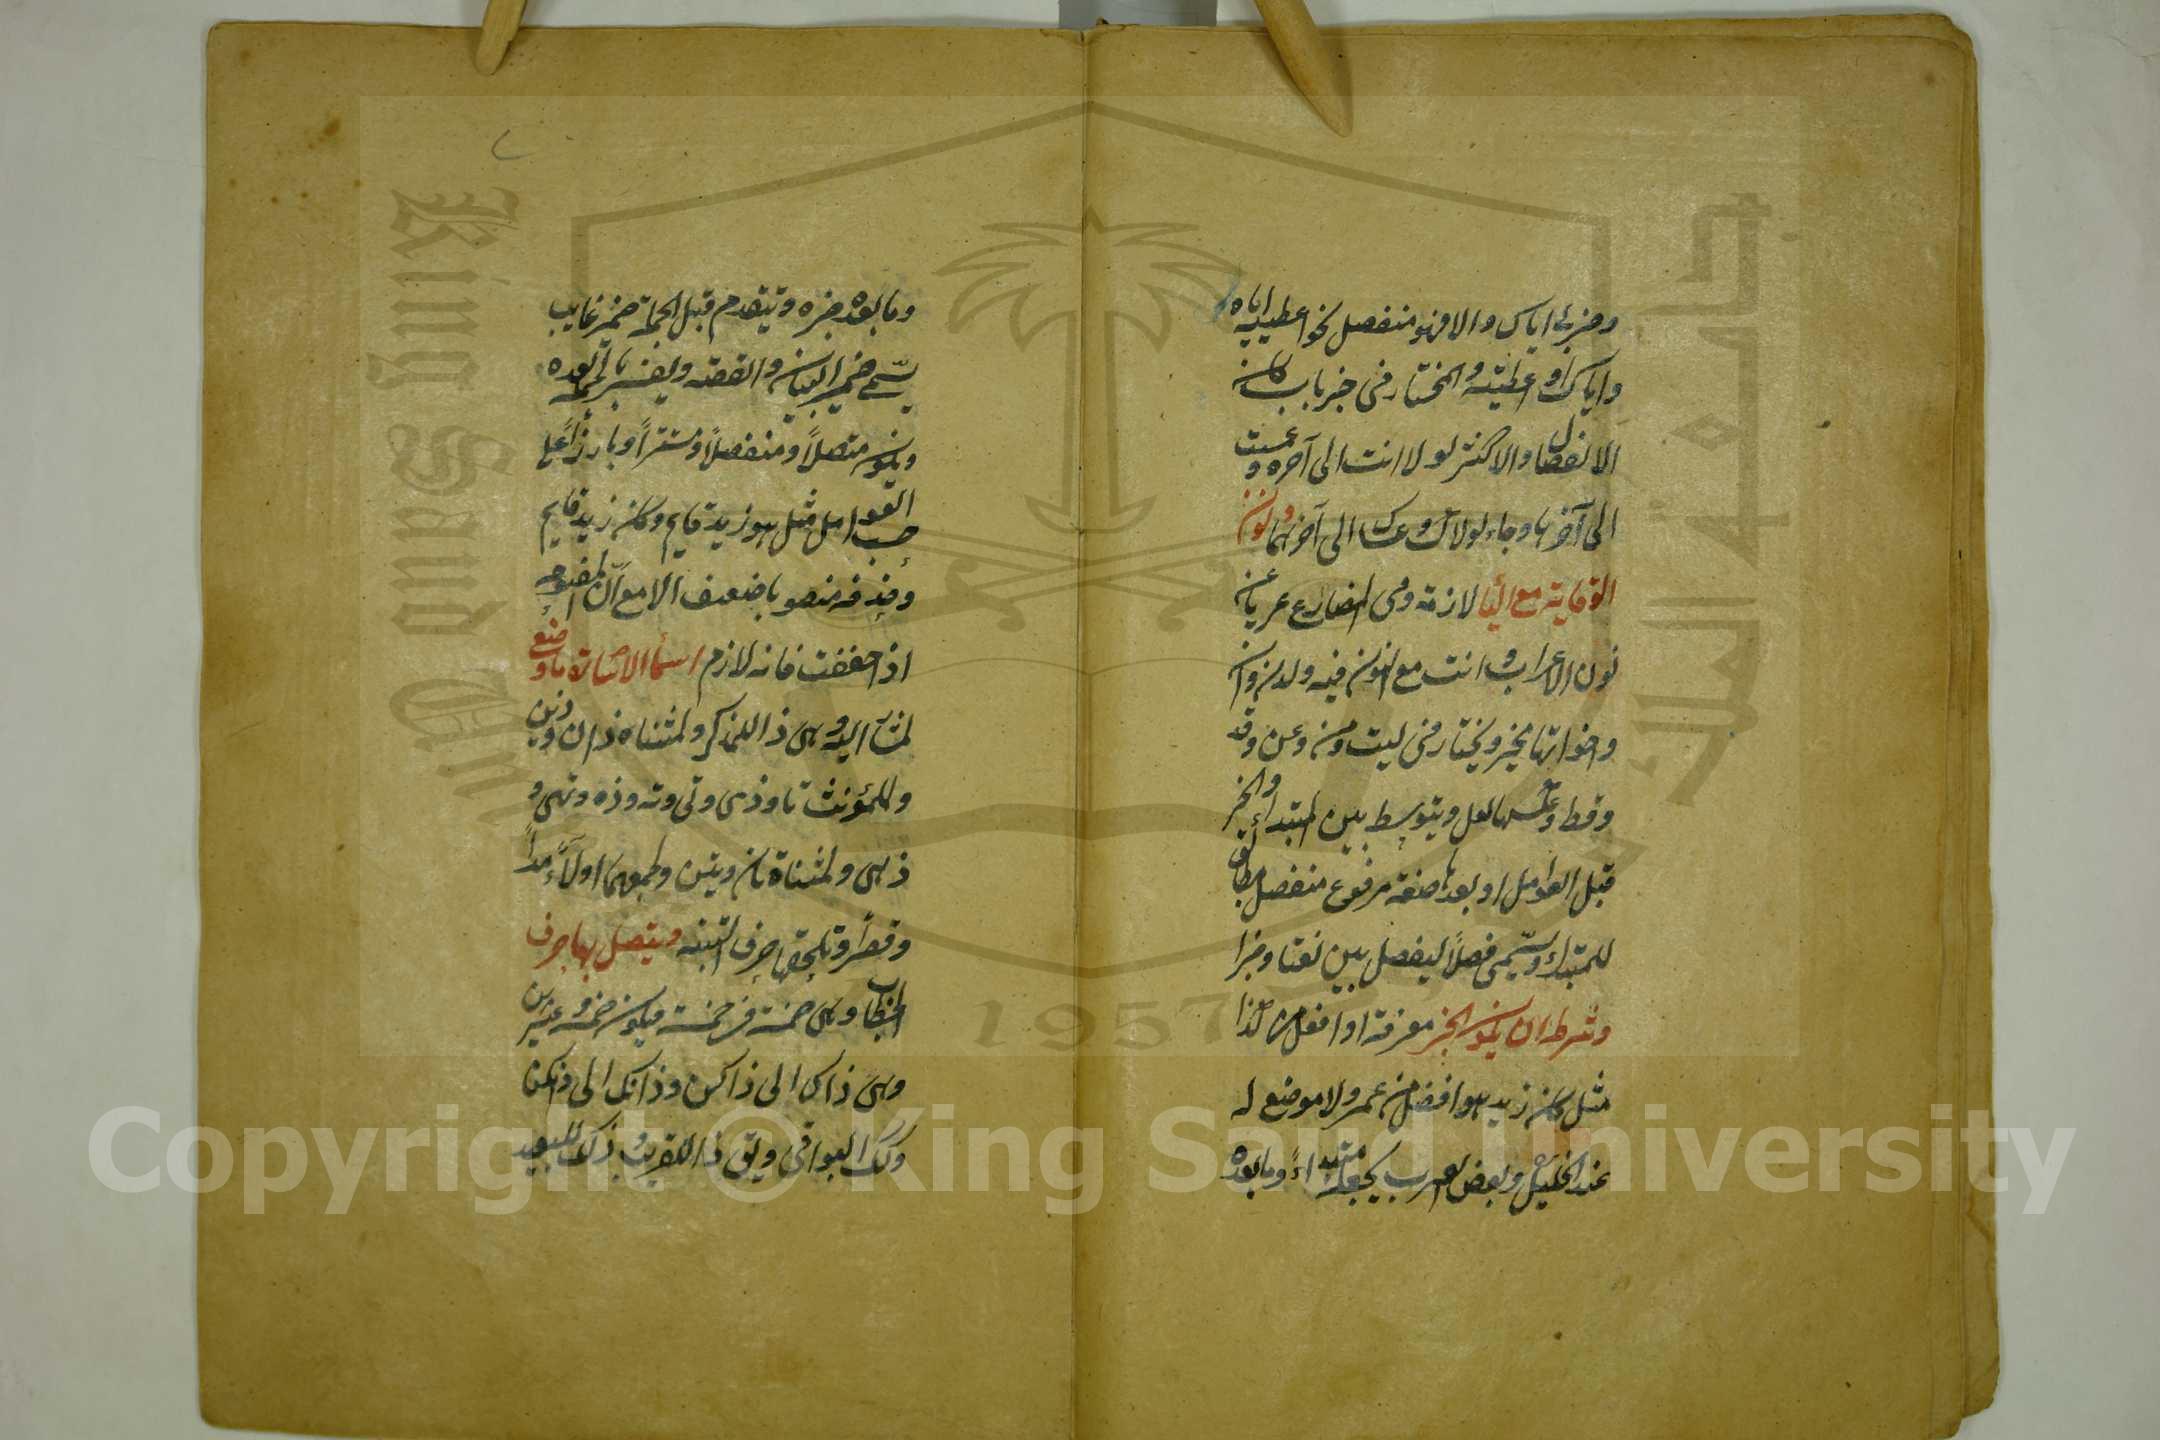 وضربی اياك والا فهو منفصل نحو اعطيته اياه
واياك او اعطيته والمختار فی خبر باب كان
الانفصال والاكثر لولا انت الی آخره وعسيت
الی آخرها وجاء لولاك وعساك الی آخرهما ونون
الوقاية مع اليا لازمة وفی المضارع عريا عن
نون الاعراب وانت مع النون فيه ولدن وان
واخواتها مخير ويختار فی ليت ومن وعن وقد
وقط وعكسها لعل ويتوسط بين المبتداء والخبر
قبل العوامل او بعدها صيغة مرفوع منفصل مطابق
للمبتداء ويسمی فصلاً ليفصل بين نعتا وخبرا
وشرطه ان يكون الخبر معرفة او افعل من كذا
مثل كان زيد هو افضل من عمرو لا موضع له
عند الخليل وبعض العرب يجعله مبتداءً وما بعده
وما بعده خبره ويتقدم قبل الجملة ضمير غايب
يسمی ضمير الشان والقصة ويفسر بالجملة بعده
ويكون متصلاً ومنفصلاً ومستتراً وبارزاً علی
حسب العوامل مثل هو زيد قايم وكان زيد قايم
وحذفه منصوبا ضعيف الا مع انّ المفتوحة
اذا خففت فانه لازم اسماء الاشارة ما وضع
لمشار اليه وهی ذا للمذكر ولمثناه ذان وذين
وللمؤنث تا وذی وتی وته وذه وتهی و
ذهی ولمثناة تان وتين ولجمعهما اولاء مداً
وقصراً وتلحقها حرف التنبيه ويتصل بها حرف
الخطاب وهی خمسة فی خمسة فيكون خمسة وعشرين
وهی ذاك الی ذاكن وذانك الی ذانكن
وكذلك البواقی ويق ذا للقريب وذلك للبعيد
Copyright © King Saud University
King Saud University
1957